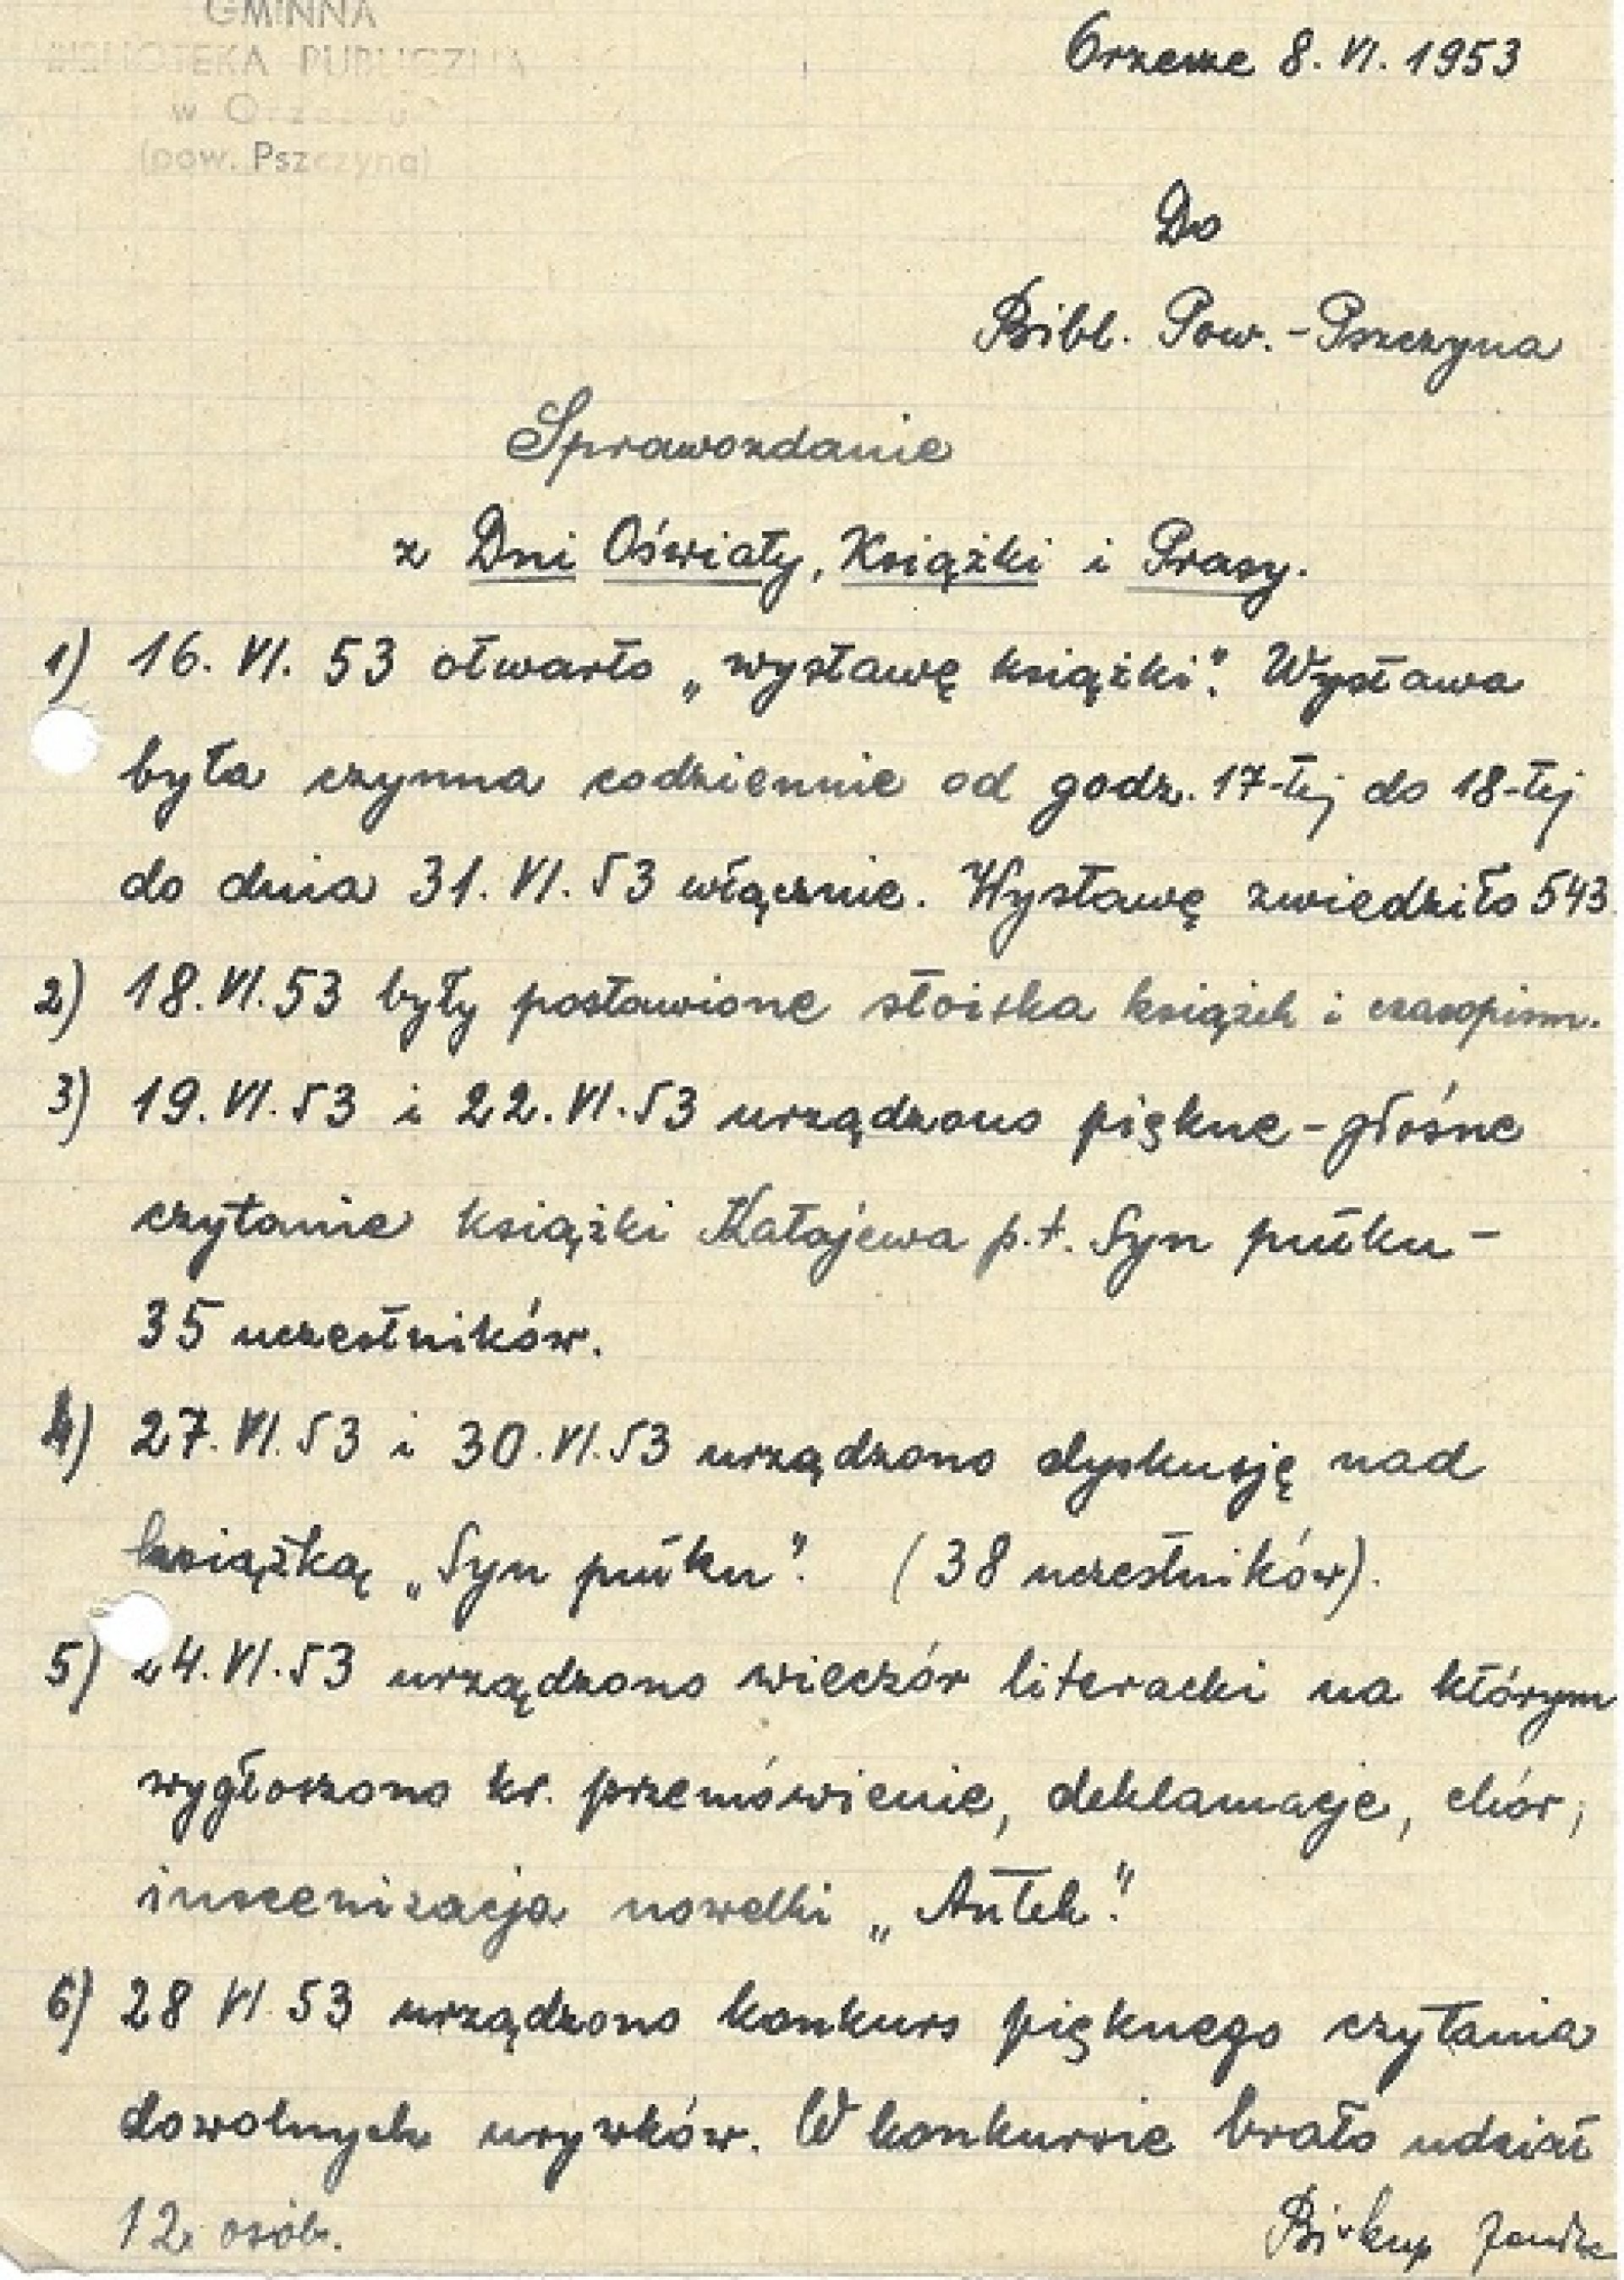 GMINNA
BIBLIOTEKA PUBLICZNA
w Orzeszu
(pow. Pszczyna)
Orzesze 8. VI. 1953
Do
Bibl. Pow. - Pszczyna
Sprawozdanie
z Dni Oświaty, Książki i Prasy.
1) 16. VI. 53 otwarto „wystawę książki". Wystawa
była czynna codziennie od godz. 17-tej do 18-tej
do dnia 31. VI. 53 włącznie. Wystawę zwiedziło 543.
2) 18. VI. 53 były postawione stoiska książek i czasopism.
3) 19. VI. 53 i 22. VI. 53 urządzono piękne - głośne
czytanie książki Katajewa p.t. Syn pułku -
35 uczestników.
4) 27. VI. 53 i 30. VI. 53 urządzono dyskusję nad
książką „Syn pułku". (38 uczestników).
5) 24. VI. 53 urządzono wieczór literacki na którym
wygłoszono kr. przemówienie, deklamacje, chór,
inscenizacja nowelki „Antek".
6) 28 VI 53 urządzono konkurs pięknego czytania
dowolnych urywków. W konkursie brało udział
12 osób.
Biskup